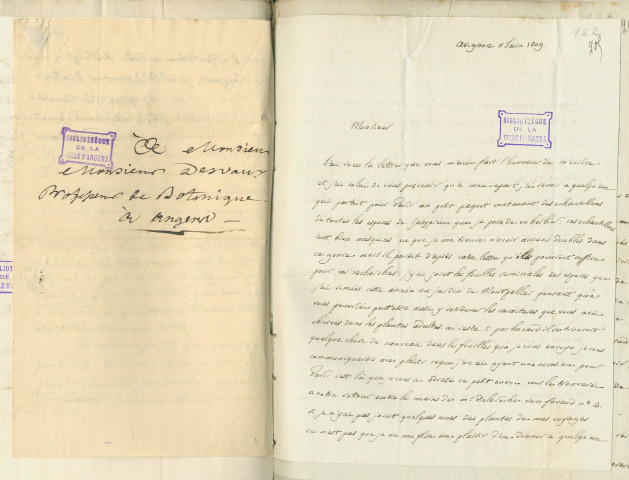 BIBLIOTHÈQUE
DE LA
VILLE D'ANGERS
A Monsieur
Monsieur Desvaux
Professeur de Botanique
à Angers
122
avignon 8 Juin 1809
BIBLIOTHÈQUE
DE LA
VILLE D'ANGERS
Monsieur
J'ai recu la lettre que vous m'avez fait l'honneur de m'ecrire
et j'ai celui de vous prevenir qu'a mon depart j'ai remis a quelqu'un
qui partoit pour Paris un petit paquet contenant des echantillons
de toutes les especes de que je possede en herbier; ces echantillons
sont bien maigres vu que je me trouve n'avoir aucuns doubles dans
ce genre mais il paroit d'après votre lettre qu'ils pourront suffire
pour vos recherches; j'y ai joint les feuilles seminales des especes que
j'ai semées cette année au jardin de Montpellier pensant que
vous pourriez peut etre aussi y retrouver les caracteres que vous avez
observés dans les plantes adultes. au reste si par hazard il se trouvoit
quelque chose de nouveau dans les feuilles que je vous envoye je vous
communiquerois avec plaisir ce que j'en ai ayant une occasion pour
Paris c'est là que je vous ai adressé ce petit envoi. vous le trouverez
a votre retour entre les mains de mr. Delaroche rue favard n°.
Si je n'y ai pas joint quelques unes des plantes de mes voyages
ce n'est pas que je ne me fisse un plaisir d'en donner a quelqu'un